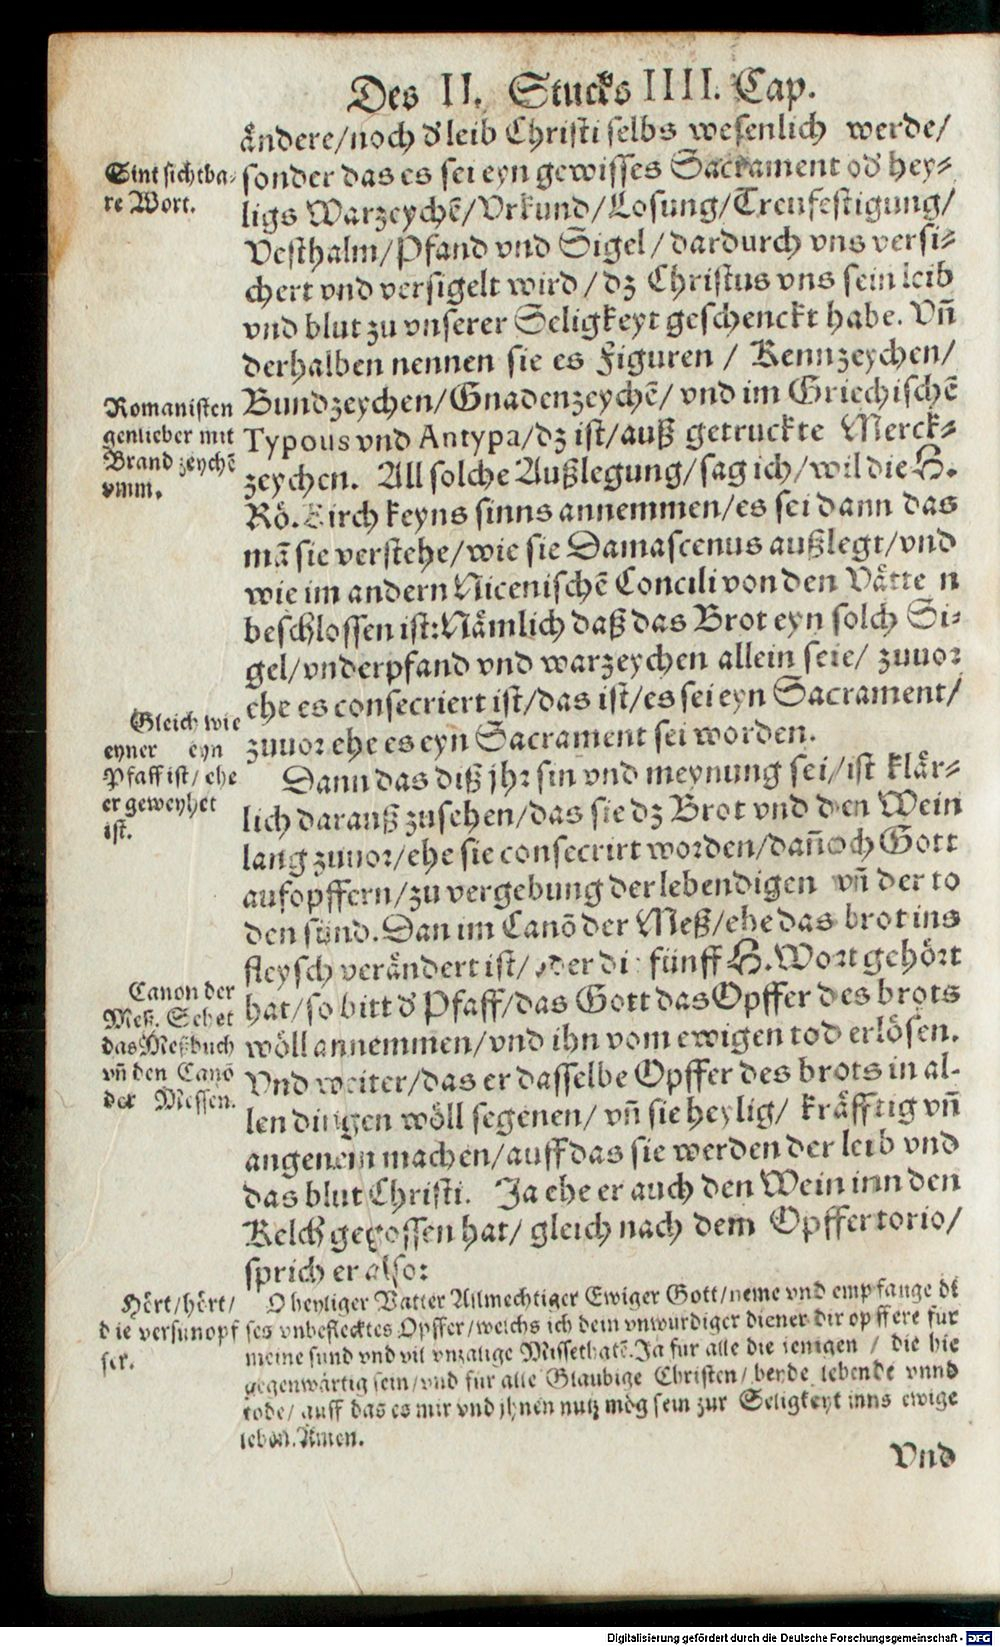 Des II. Stucks IIII. Cap.
ändere/noch d' leib Christi selbs wesenlich werde/
sonder das es sei eyn gewisses Sacrament od' hey-
ligs Warzeychē/Vrkund/Losung/Treufestigung/
Vesthalm/Pfand vnd Sigel/dardurch vns versi-
chert vnd versigelt wird/dz Christus vns sein leib
vnd blut zu vnserer Seligkeyt geschenckt habe. Vñ
derhalben nennen sie es Figuren / Kennzeychen/
Bundzeychen/Gnadenzeychē/ vnd im Griechischē
Typous vnd Antypa/dz ist/auß getruckte Merck-
zeychen. All solche Außlegung/sag ich/wil die H.
Rö. Kirch keyns sinns annemmen/es sei dann das
mā sie verstehe/wie sie Damascenus außlegt/vnd
wie im andern Nicenischē Concili von den Vätte n
beschlossen ist: Nämlich daß das Brot eyn solch Si-
gel/vnderpfand vnd warzeychen allein seie/ zuuor
ehe es consecriert ist/das ist/es sei eyn Sacrament/
zuuor ehe es eyn Sacrament sei worden.
Dann das diß jhr sin vnd meynung sei/ist klär-
lich darauß zusehen/das sie dz Brot vnd den Wein
lang zuuor/ehe sie consecrirt worden/dañoch Gott
aufopffern/zu vergebung der lebendigen vñ der to
den sünd. Dan im Canō der Meß/ehe das brot ins
fleysch verändert ist/oder di fünff H. Wort gehört
hat/so bitt d' Pfaff/das Gott das Opffer des brots
wöll annemmen/vnd ihn vom ewigen tod erlösen.
Vnd weiter/das er dasselbe Opffer des brots in al-
len dingen wöll segenen/ vñ sie heylig/ kräfftig vñ
angenem machen/auff das sie werden der leib vnd
das blut Christi. Ja ehe er auch den Wein inn den
Kelch gegossen hat/ gleich nach dem Opffertorio/
sprich er also:
O heyliger Vatter Allmechtiger Ewiger Gott/neme vnd empfange di
ses vnbeflecktes Opffer/welchs ich dein vnwurdiger diener dir opffere fur
meine sund vnd vil vnzalige Missethatē. Ja fur alle die jenigen / die hie
gegenwärtig sein/vnd für alle Glaubige Christen/ beyde lebende vnnd
tode/ auff das es mir vnd jhnen nutz mög sein zur Seligkeyt inns ewige
leben. Amen.
Vnd
Sint sichtba-
re Wort.
Romanisten
genlieber mit
Brand zeychē
vmm.
Gleich wie
eyner eyn
Pfaff ist/ ehe
er geweyhet
ist.
Canon der
Meß. Sehet
das Meßbuch
vñ den Canō
der Messen.
Hört/hört/
die versunopf
fer.
Digitalisierung gefördert durch die Deutsche Forschungsgemeinschaft - DFG